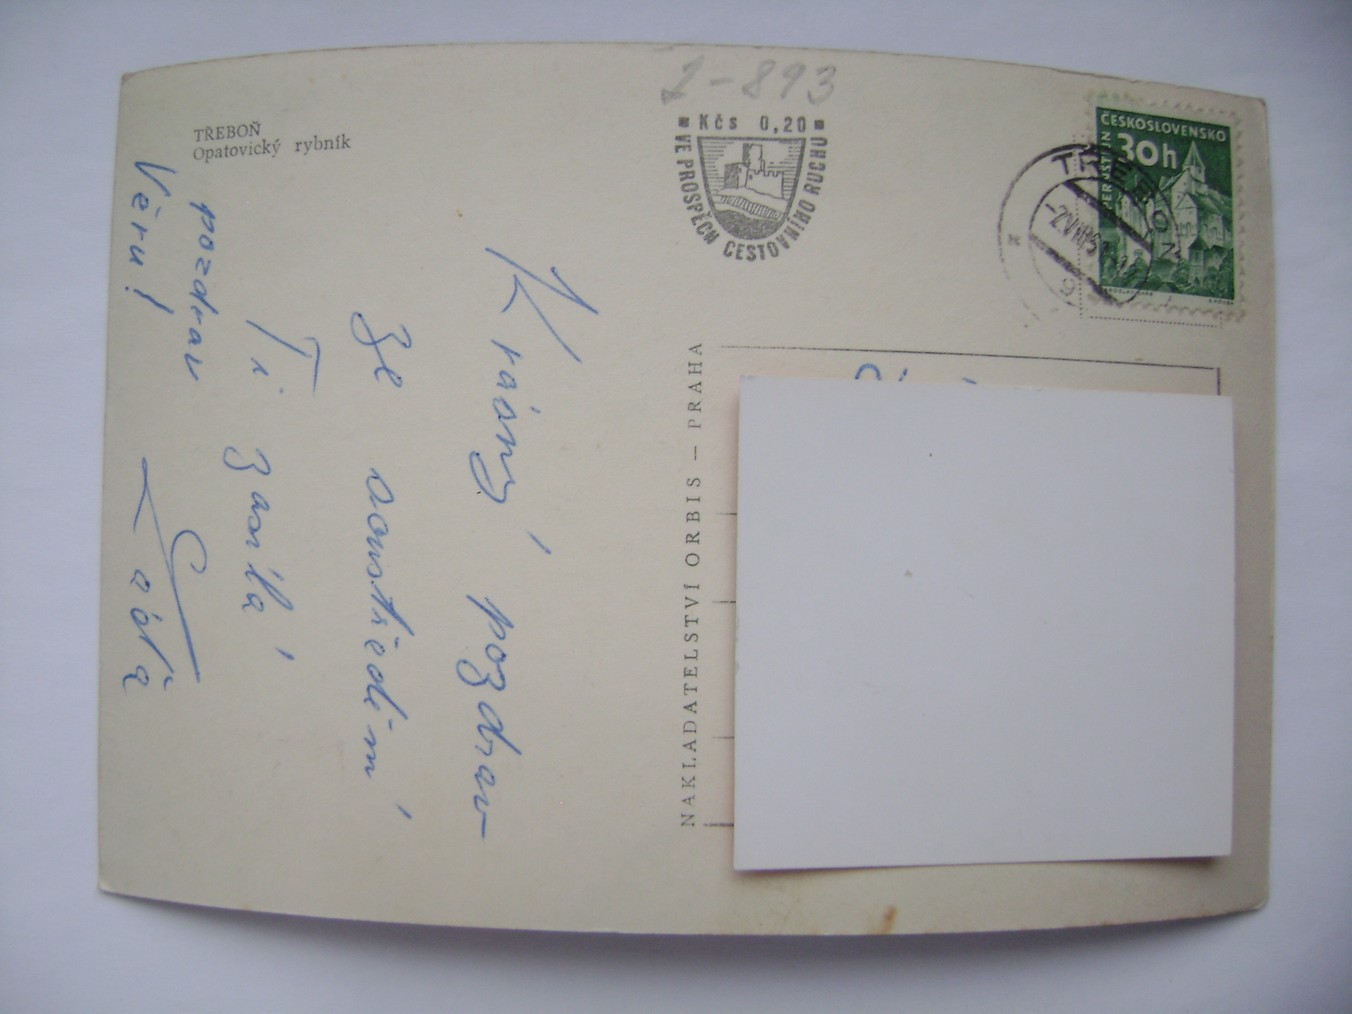 TŘEBOŇ
Opatovický rybník
1-893
Kčs 0,20
VE PROSPĚCH CESTOVNÍHO RUCHU
ČESKOSLOVENSKO
30h
PERNŠTEJN
TŘEBOŇ
NAKLADATELSTVÍ ORBIS — PRAHA
Věru!
Krásný pozdrav
ze soustředění
Ti zasílá
pozdrav